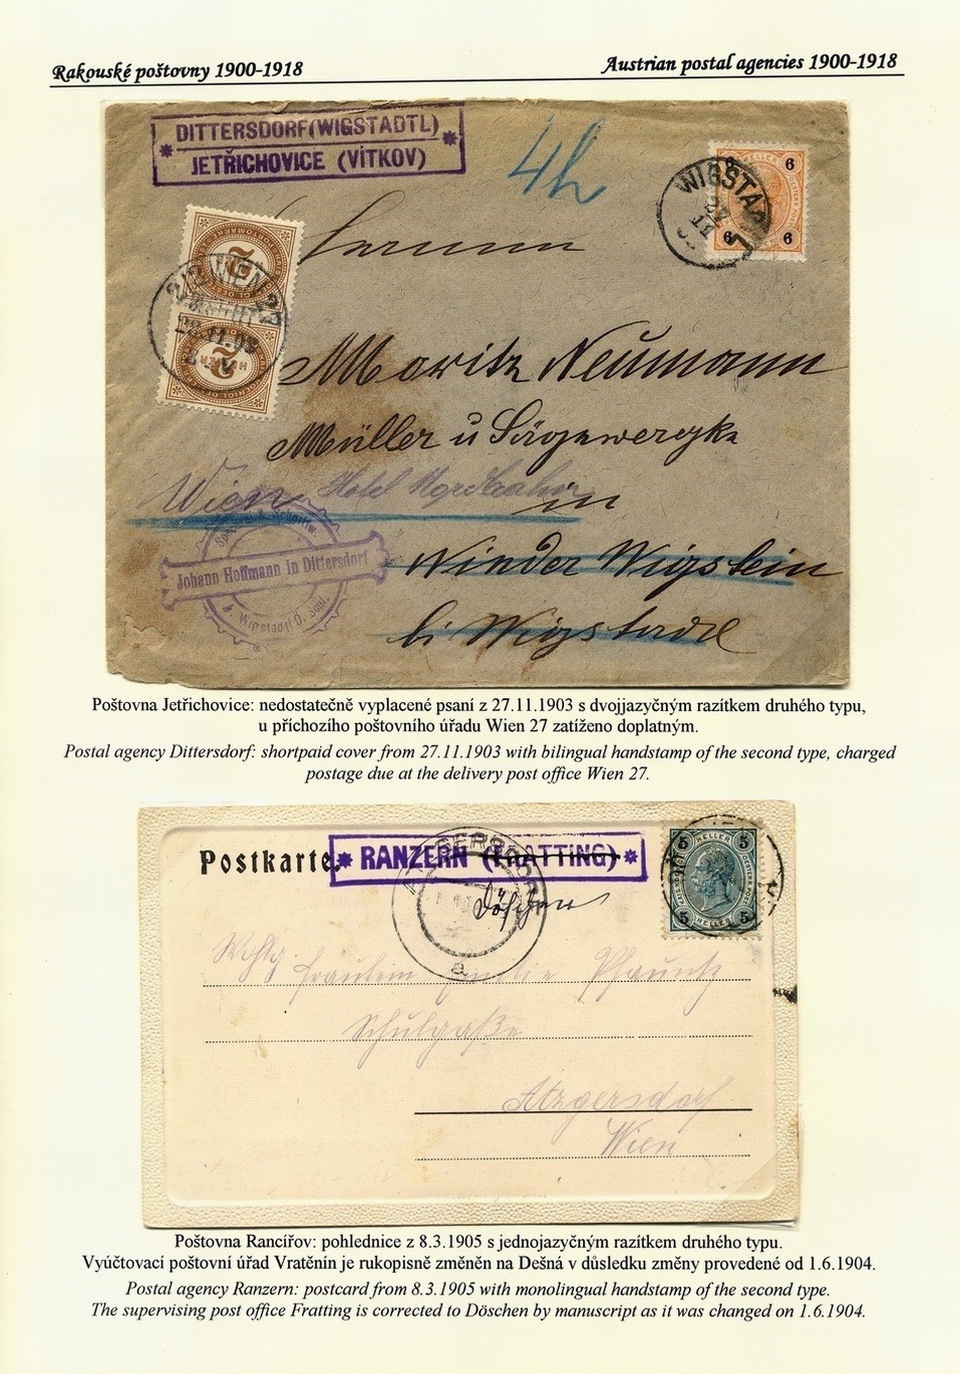 Rakouské poštovny 1900-1918
Austrian postal agencies 1900-1918
DITTERSDORF(WIGSTADTL)
* JETŘICHOVICE (VÍTKOV) *
4h
6 HELLER 6
6 6
WIGSTAD
2/2 WIEN 27
2
2
Herrn
Moritz Neumann
Müller u Sägewergke
Wien Hotel Nordbahn
in
Johann Hoffmann in Dittersdorf
b. Wigstadtl Ö. Schl.
Nieder Wigstein
bei Wigstadtl
Poštovna Jetřichovice: nedostatečně vyplacené psaní z 27.11.1903 s dvojjazyčným razítkem druhého typu,
u příchozího poštovního úřadu Wien 27 zatíženo doplatným.
Postal agency Dittersdorf: shortpaid cover from 27.11.1903 with bilingual handstamp of the second type, charged
postage due at the delivery post office Wien 27.
Postkarte.
* RANZERN (FRATTING) *
Döschen
5 HELLER 5
5 HELLER 5
a
Wohlg. Fräulein Emilie
Schulgaße
Atzgersdorf
Wien
Poštovna Rancířov: pohlednice z 8.3.1905 s jednojazyčným razítkem druhého typu.
Vyúčtovací poštovní úřad Vratěnín je rukopisně změněn na Dešná v důsledku změny provedené od 1.6.1904.
Postal agency Ranzern: postcard from 8.3.1905 with monolingual handstamp of the second type.
The supervising post office Fratting is corrected to Döschen by manuscript as it was changed on 1.6.1904.